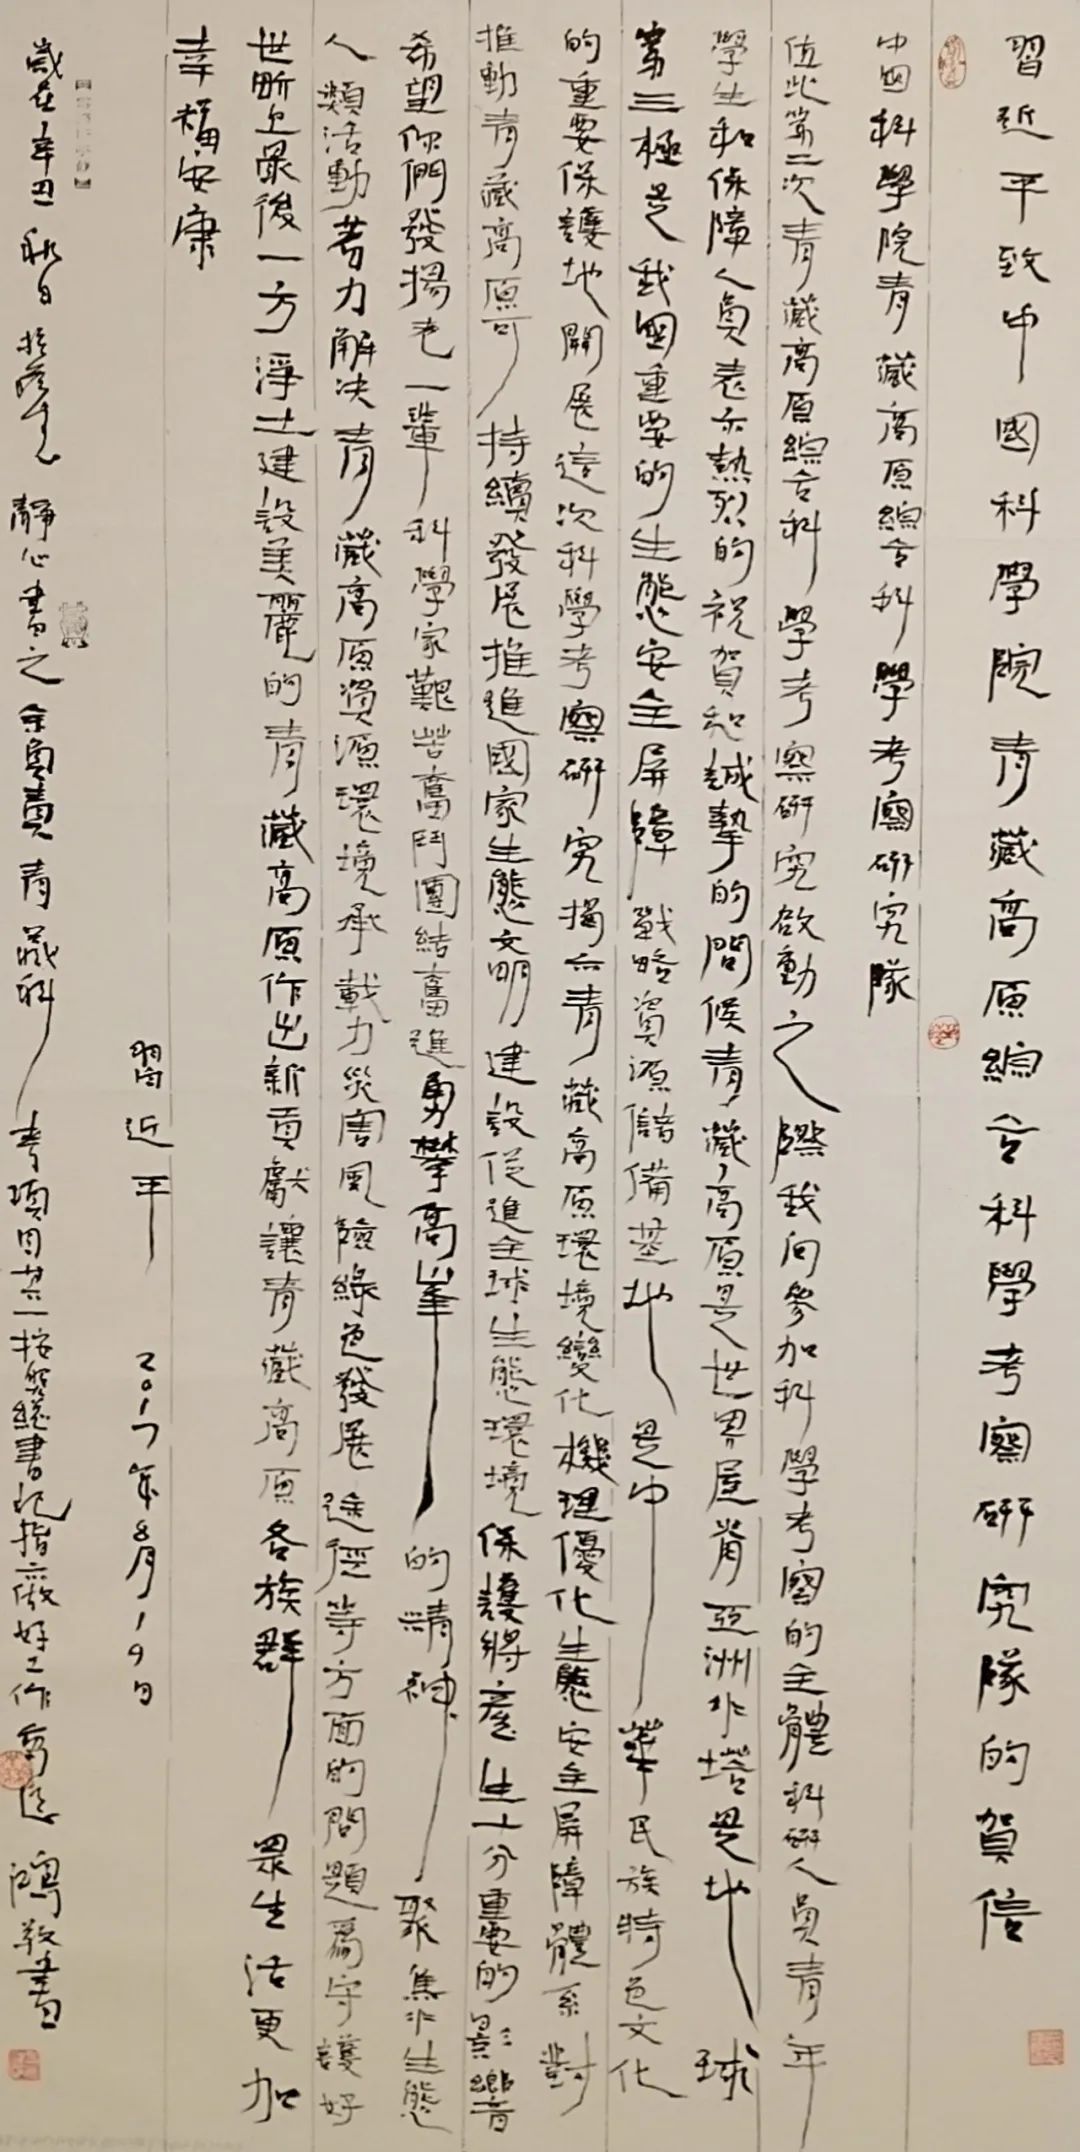 習近平致中國科學院青藏高原綜合科學考察研究隊的賀信
中國科學院青藏高原綜合科學考察研究隊
值此第二次青藏高原綜合科學考察研究啟動之際我向參加科學考察的全體科研人員青年
學生和保障人員表示熱烈的祝賀和誠摯的問候青藏高原是世界屋脊亞洲水塔是地球
第三極是我國重要的生態安全屏障戰略資源儲備基地是中華民族特色文化
的重要保護地開展這次科學考察研究揭示青藏高原環境變化機理優化生態安全屏障體系對
推動青藏高原可持續發展推進國家生態文明建設促進全球生態環境保護將產生十分重要的影響
希望你們發揚老一輩科學家艱苦奮鬥團結奮進勇攀高峯的精神聚焦水生態
人類活動著力解決青藏高原資源環境承載力災害風險綠色發展途徑等方面的問題為守護好
世界上最後一方淨土建設美麗的青藏高原作出新貢獻讓青藏高原各族群眾生活更加
幸福安康
習近平 2017年8月19日
歲在辛丑秋日 靜心書之余負責青藏科考項目其一按照總書記指示做好工作 鴻敬書